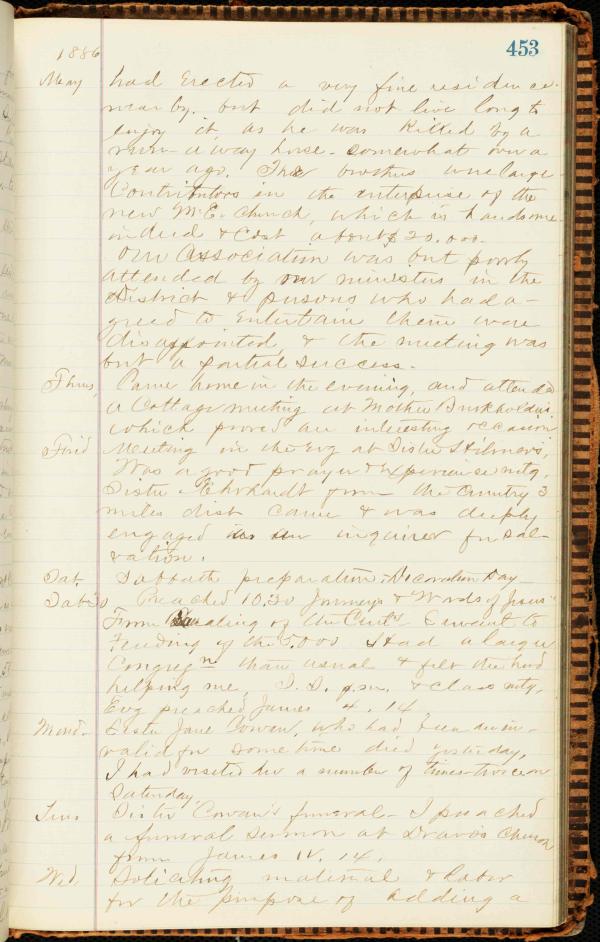 453
1886
May had Erected a very fine residence
near by. but did not live long to
enjoy it as he was Killed by a
run-away horse. somewhat over a
year ago. The brothers were large
Contributors in the enterprise of the
new M.E. Church, which is handsome
indeed & Cost about $20.000.
Our Association was but poorly
attended by our ministers in the
district & persons who had a-
greed to Entertain them were
disappointed, & the meeting was
but a partial success.
Thurs, Came home in the evening, and attended
a Cottage meeting at Mother Burkholder's,
which proved an interesting occasion
Frid Meeting in the Evg at Sister
Was a good prayer & Experience mtg.
Sister Ehrhardt from the Country 3
miles dist came & was deeply
engaged as an inquirer for sal-
vation.
Sat. Sabbath preparation. Decoration Day
Sab 30 Preached 10.30 Journeys & Words of Jesus
From Healing of the Cent's Servant to
Feeding of the 5,000 Had a larger
Congregn than usual & felt the Lord
helping me. S.S. p.m. & Class mtg.
Evg preached James 4.14
Mond. Sister Jane Cowen, who had been an in-
valid for sometime died yesterday,
I had visited her a number of times - twice on
Saturday
Tues Sister Cowan's funeral - I preached
a funeral sermon at Dravo's Church
from James IV. 14.
Wed. Soliciting material & labor
for the purpose of adding a